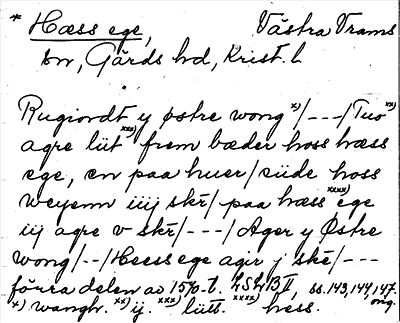 * Hæss ege, Västra Vrams
sn, Gärds hd, Krist. l.
Rugiordt y østre wong x)/---/Tuo xx)
agre liit xxx) frem bæder hoss hæss
ege, en paa huer/siide hoss
weyenn iiij skr/paa hæss xxxx) ege
iij agre v skr/---/Ager y Østre
wong/--/Heess ege agir j skr/---
förra delen av 1570-t. LSLB II, ss. 143, 144, 147.
x) wangh. xx) ij. xxx) lütt. xxxx) hess. orig.